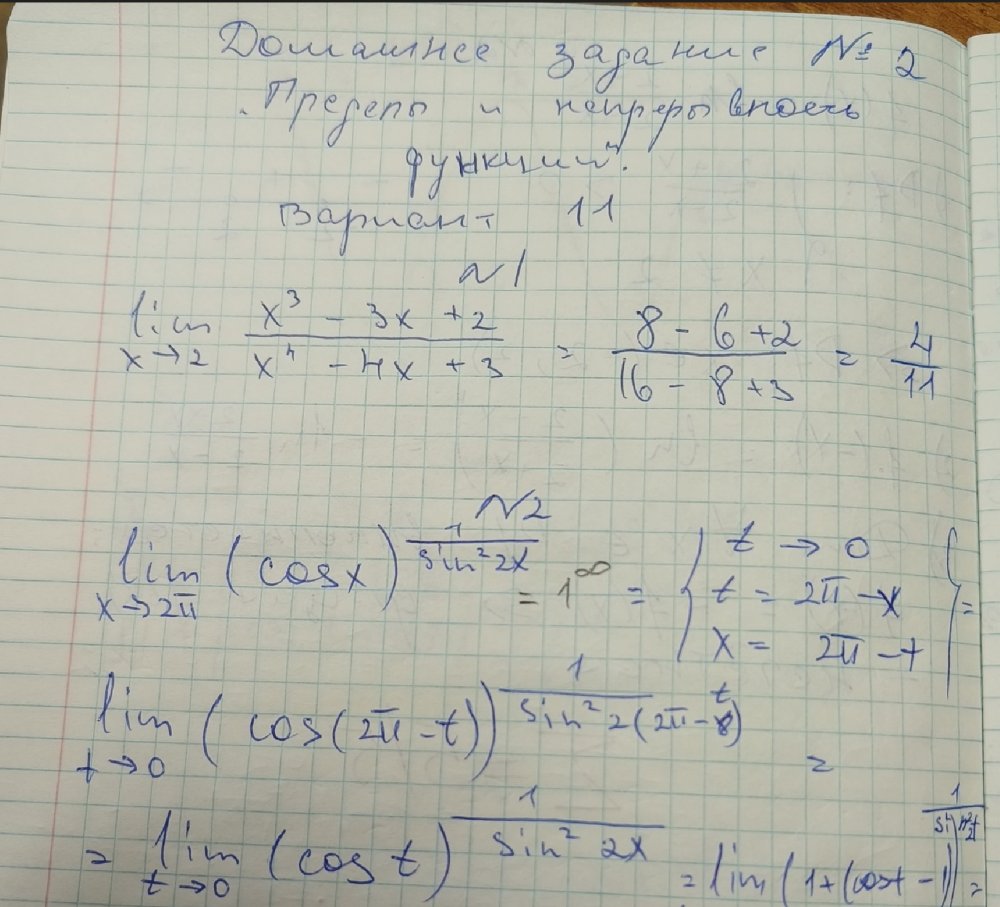 Домашнее задание № 2
"Пределы и непрерывность
функций".
Вариант 11
N1
lim x→2 (x³ - 3x + 2)/(x⁴ - 4x + 3) = (8 - 6 + 2)/(16 - 8 + 3) = 4/11
N2
lim x→2π (cosx)^(1/(sin² 2x)) = 1^∞ = { t → 0
t = 2π - x
x = 2π - t } =
lim t→0 (cos(2π - t))^(1/(sin² 2(2π - t))) =
= lim t→0 (cos t)^(1/(sin² 2x)) = lim (1 + (cost - 1))^(1/(sin² 2t)) =